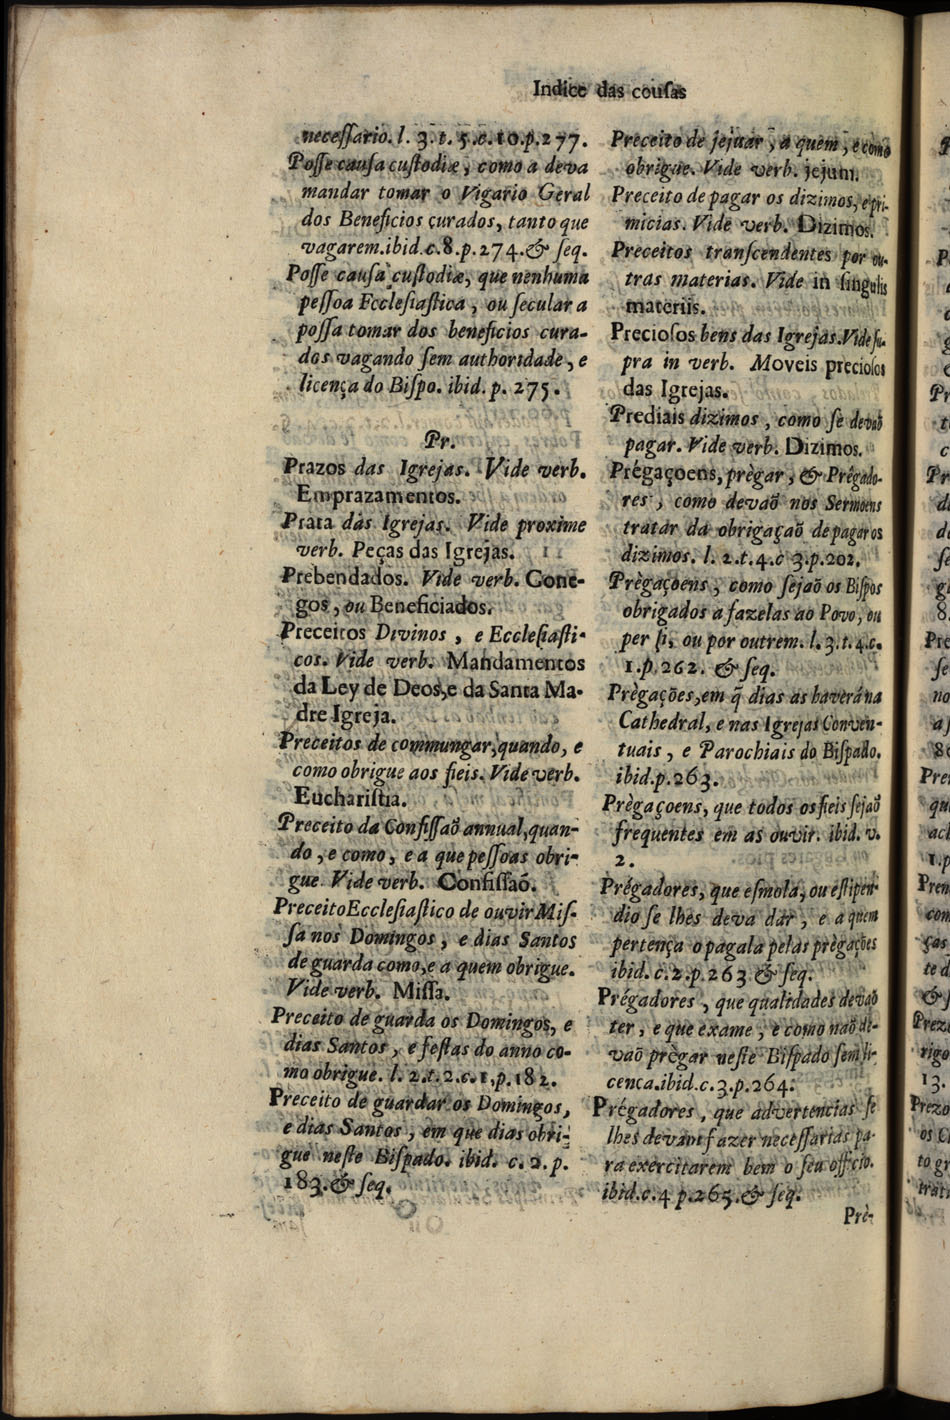 Indice das couſas
neceſſario. l. 3. t. 5. c. 10. p. 277.
Poſſe cauſa cuſtodiæ, como a deva
mandar tomar o Vigario Geral
dos Beneficios curados, tanto que
vagarem. ibid. c. 8. p. 274. & ſeq.
Poſſe cauſa cuſtodiæ, que nenhuma
peſſoa Eccleſiaſtica, ou ſecular a
poſſa tomar dos beneficios cura-
dos vagando ſem authoridade, e
licença do Biſpo. ibid. p. 275.
Pr.
Prazos das Igrejas. Vide verb.
Emprazamentos.
Prata das Igrejas. Vide proxime
verb. Peças das Igrejas.
Prebendados. Vide verb. Cone-
gos, ou Beneficiados.
Preceitos Divinos, e Eccleſiaſti-
cos. Vide verb. Mandamentos
da Ley de Deos, e da Santa Ma-
dre Igreja.
Preceitos de commungar, quando, e
como obrigue aos fieis. Vide verb.
Euchariſtia.
Preceito da Confiſſaõ annual, quan-
do, e como, e a que peſſoas obri-
gue. Vide verb. Confiſſaõ.
Preceito Eccleſiaſtico de ouvir Miſ-
ſa nos Domingos, e dias Santos
de guarda como, e a quem obrigue.
Vide verb. Miſſa.
Preceito de guarda os Domingos, e
dias Santos, e feſtas do anno co-
mo obrigue. l. 2. t. 2. c. 1. p. 182.
Preceito de guardar os Domingos,
e dias Santos, em que dias obri-
gue neſte Biſpado. ibid. c. 2. p.
183. & ſeq.
Preceito de jejuar, a quem, e como
obrigue. Vide verb. jejum.
Preceito de pagar os dizimos, e pri-
micias. Vide verb. Dizimos.
Preceitos tranſcendentes por ou-
tras materias. Vide in ſingulis
materiis.
Precioſos bens das Igrejas. Vide ſu-
pra in verb. Moveis precioſos
das Igrejas.
Prediais dizimos, como ſe devaõ
pagar. Vide verb. Dizimos.
Prégaçoens, prègar, & Prégado-
res, como devaõ nos Sermoens
tratar da obrigaçaõ de pagar os
dizimos. l. 2. t. 4. c 3. p. 202.
Prègaçoens, como ſejaõ os Biſpos
obrigados a fazelas ao Povo, ou
per ſi, ou por outrem. l. 3. t. 4. c.
1. p. 262. & ſeq.
Prègações, em q̃ dias as haverá na
Cathedral, e nas Igrejas Conven-
tuais, e Parochiais do Biſpado.
ibid. p. 263.
Prègaçoens, que todos os fieis ſejaõ
frequentes em as ouvir. ibid. v.
2.
Prégadores, que eſmola, ou eſtipen-
dio ſe lhes deva dar, e a quem
pertença o pagala pelas prègações
ibid. c. 2. p. 263. & ſeq.
Prégadores, que qualidades devaõ
ter, e que exame, e como naõ de-
vaõ prègar neſte Biſpado ſem li-
cenca. ibid. c. 3. p. 264.
Prégadores, que advertencias ſe
lhes devam fazer neceſſarias pa-
ra exercitarem bem o ſeu officio.
ibid. c. 4 p. 265. & ſeq.
Prè-